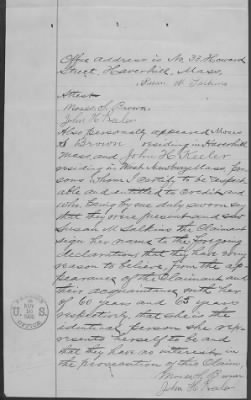 Office address is No 33 Howard
Street, Haverhill, Mass,
Susan M.
Attest
Moses S. Brown
John H. Keeler
Also personally appeared Moses
S Brown residing in Haverhill
Mass and John H Keeler
residing in West Newbury Mass per
sons whom I certify to be respect
able and entitled to credit and
who being by me duly sworn say
that they were present and saw
Susan M the Claimant
sign her name to the foregoing
declaration that they have every
reason to believe from the ap
pearance of the Claimant and
their acquaintance with her
of 60 years and 65 years
respectively, that she is the
identical person she repr
esents herself to be and
that they have no interest in
the prosecution of this Claim.
Moses S Brown
John H. Keeler
U S
OFFICE